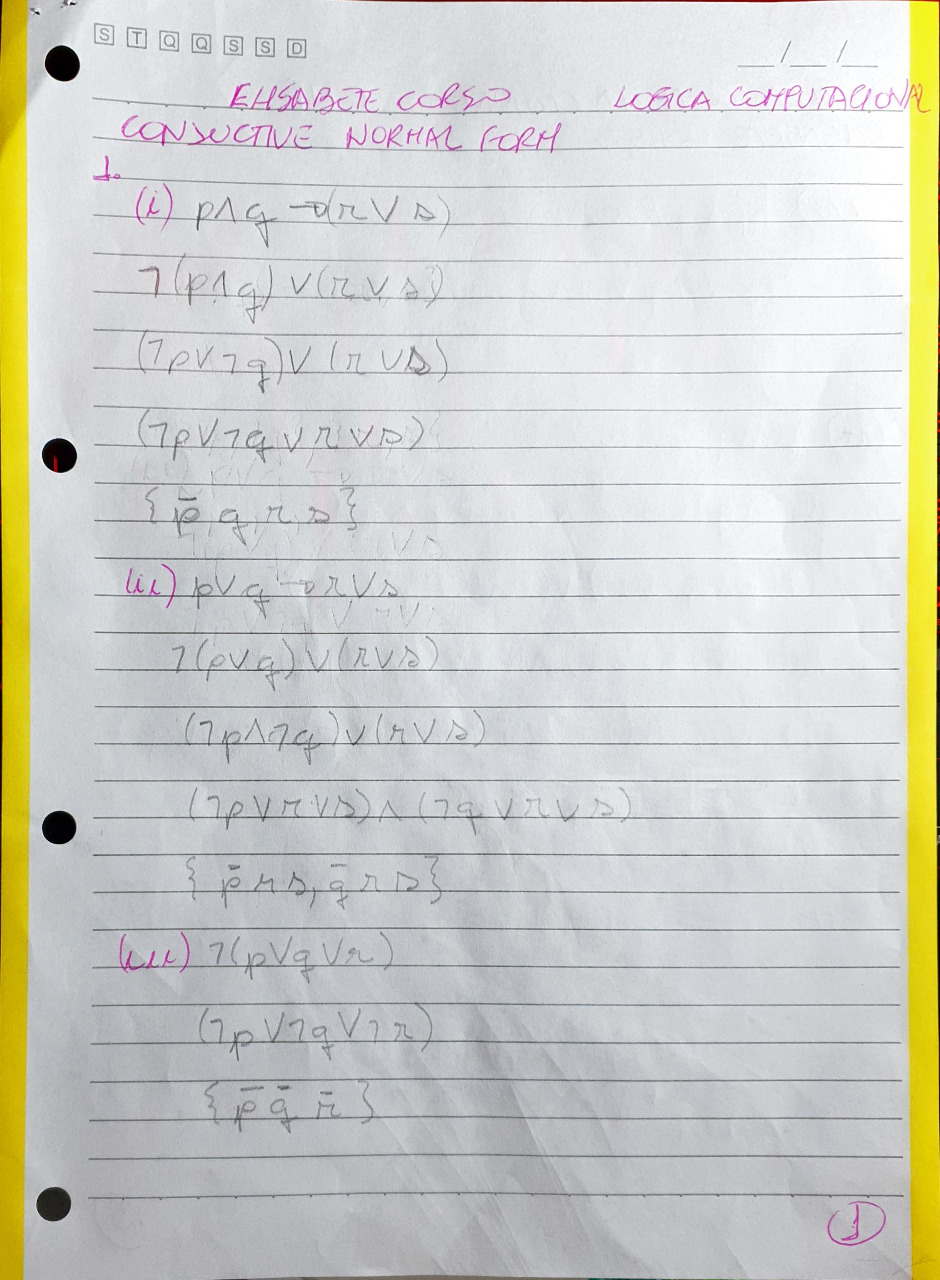 S T Q Q S S D
__/__/__
ELISABETE CORSO LOGICA COMPUTACIONAL
CONJUCTIVE NORMAL FORM
1.
(i) p∧q → (r∨s)
¬(p∧q)∨(r∨s)
(¬p∨¬q)∨(r∨s)
(¬p∨¬q∨r∨s)
{p̄ q r s}
(ii) p∨q → r∨s
¬(p∨q)∨(r∨s)
(¬p∧¬q)∨(r∨s)
(¬p∨r∨s)∧(¬q∨r∨s)
{p̄ r s, q̄ r s}
(iii) ¬(p∨q∨r)
(¬p∨¬q∨¬r)
{p̄ q̄ r̄}
1